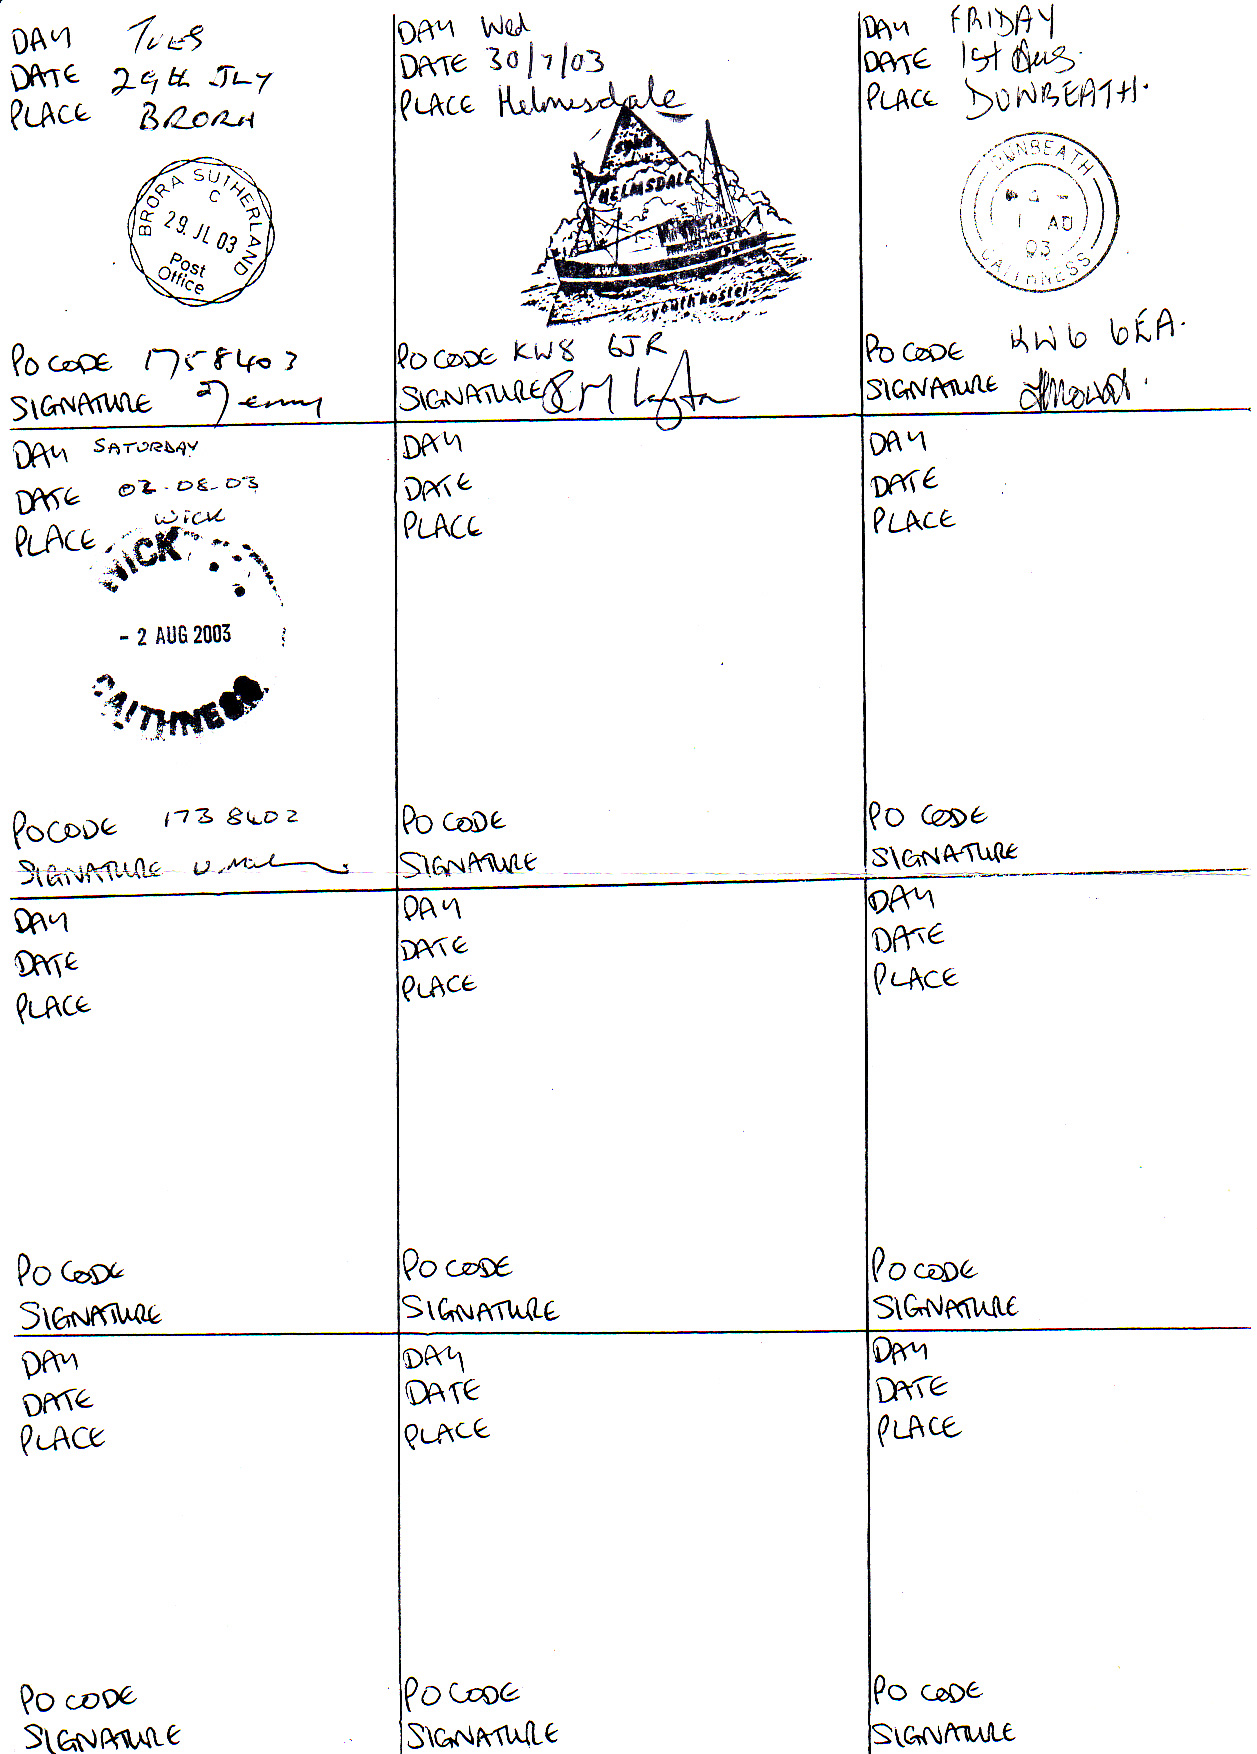 DAY Tues
DATE 29th JLY
PLACE BRORA
BRORA SUTHERLAND
C
29 JL 03
Post
Office
PO CODE 1758403
SIGNATURE
DAY Wed
DATE 30/7/03
PLACE Helmesdale
syha
HELMSDALE
youth hostel
PO CODE KW8 6JR
SIGNATURE
DAY FRIDAY
DATE 1st Aug.
PLACE DUNBEATH.
DUNBEATH
1 AU
03
CAITHNESS
PO CODE KW6 6EA.
SIGNATURE
DAY SATURDAY
DATE 02-08-03
PLACE WICK
WICK
- 2 AUG 2003
CAITHNESS
PO CODE 1738402
SIGNATURE
DAY
DATE
PLACE
PO CODE
SIGNATURE
DAY
DATE
PLACE
PO CODE
SIGNATURE
DAY
DATE
PLACE
PO CODE
SIGNATURE
DAY
DATE
PLACE
PO CODE
SIGNATURE
DAY
DATE
PLACE
PO CODE
SIGNATURE
DAY
DATE
PLACE
PO CODE
SIGNATURE
DAY
DATE
PLACE
PO CODE
SIGNATURE
DAY
DATE
PLACE
PO CODE
SIGNATURE